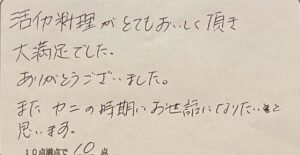 活伊料理がとてもおいしく頂き
大満足でした。
ありがとうございました。
また カニの時期にお世話になりたいと
思います。
10点満点で 10 点